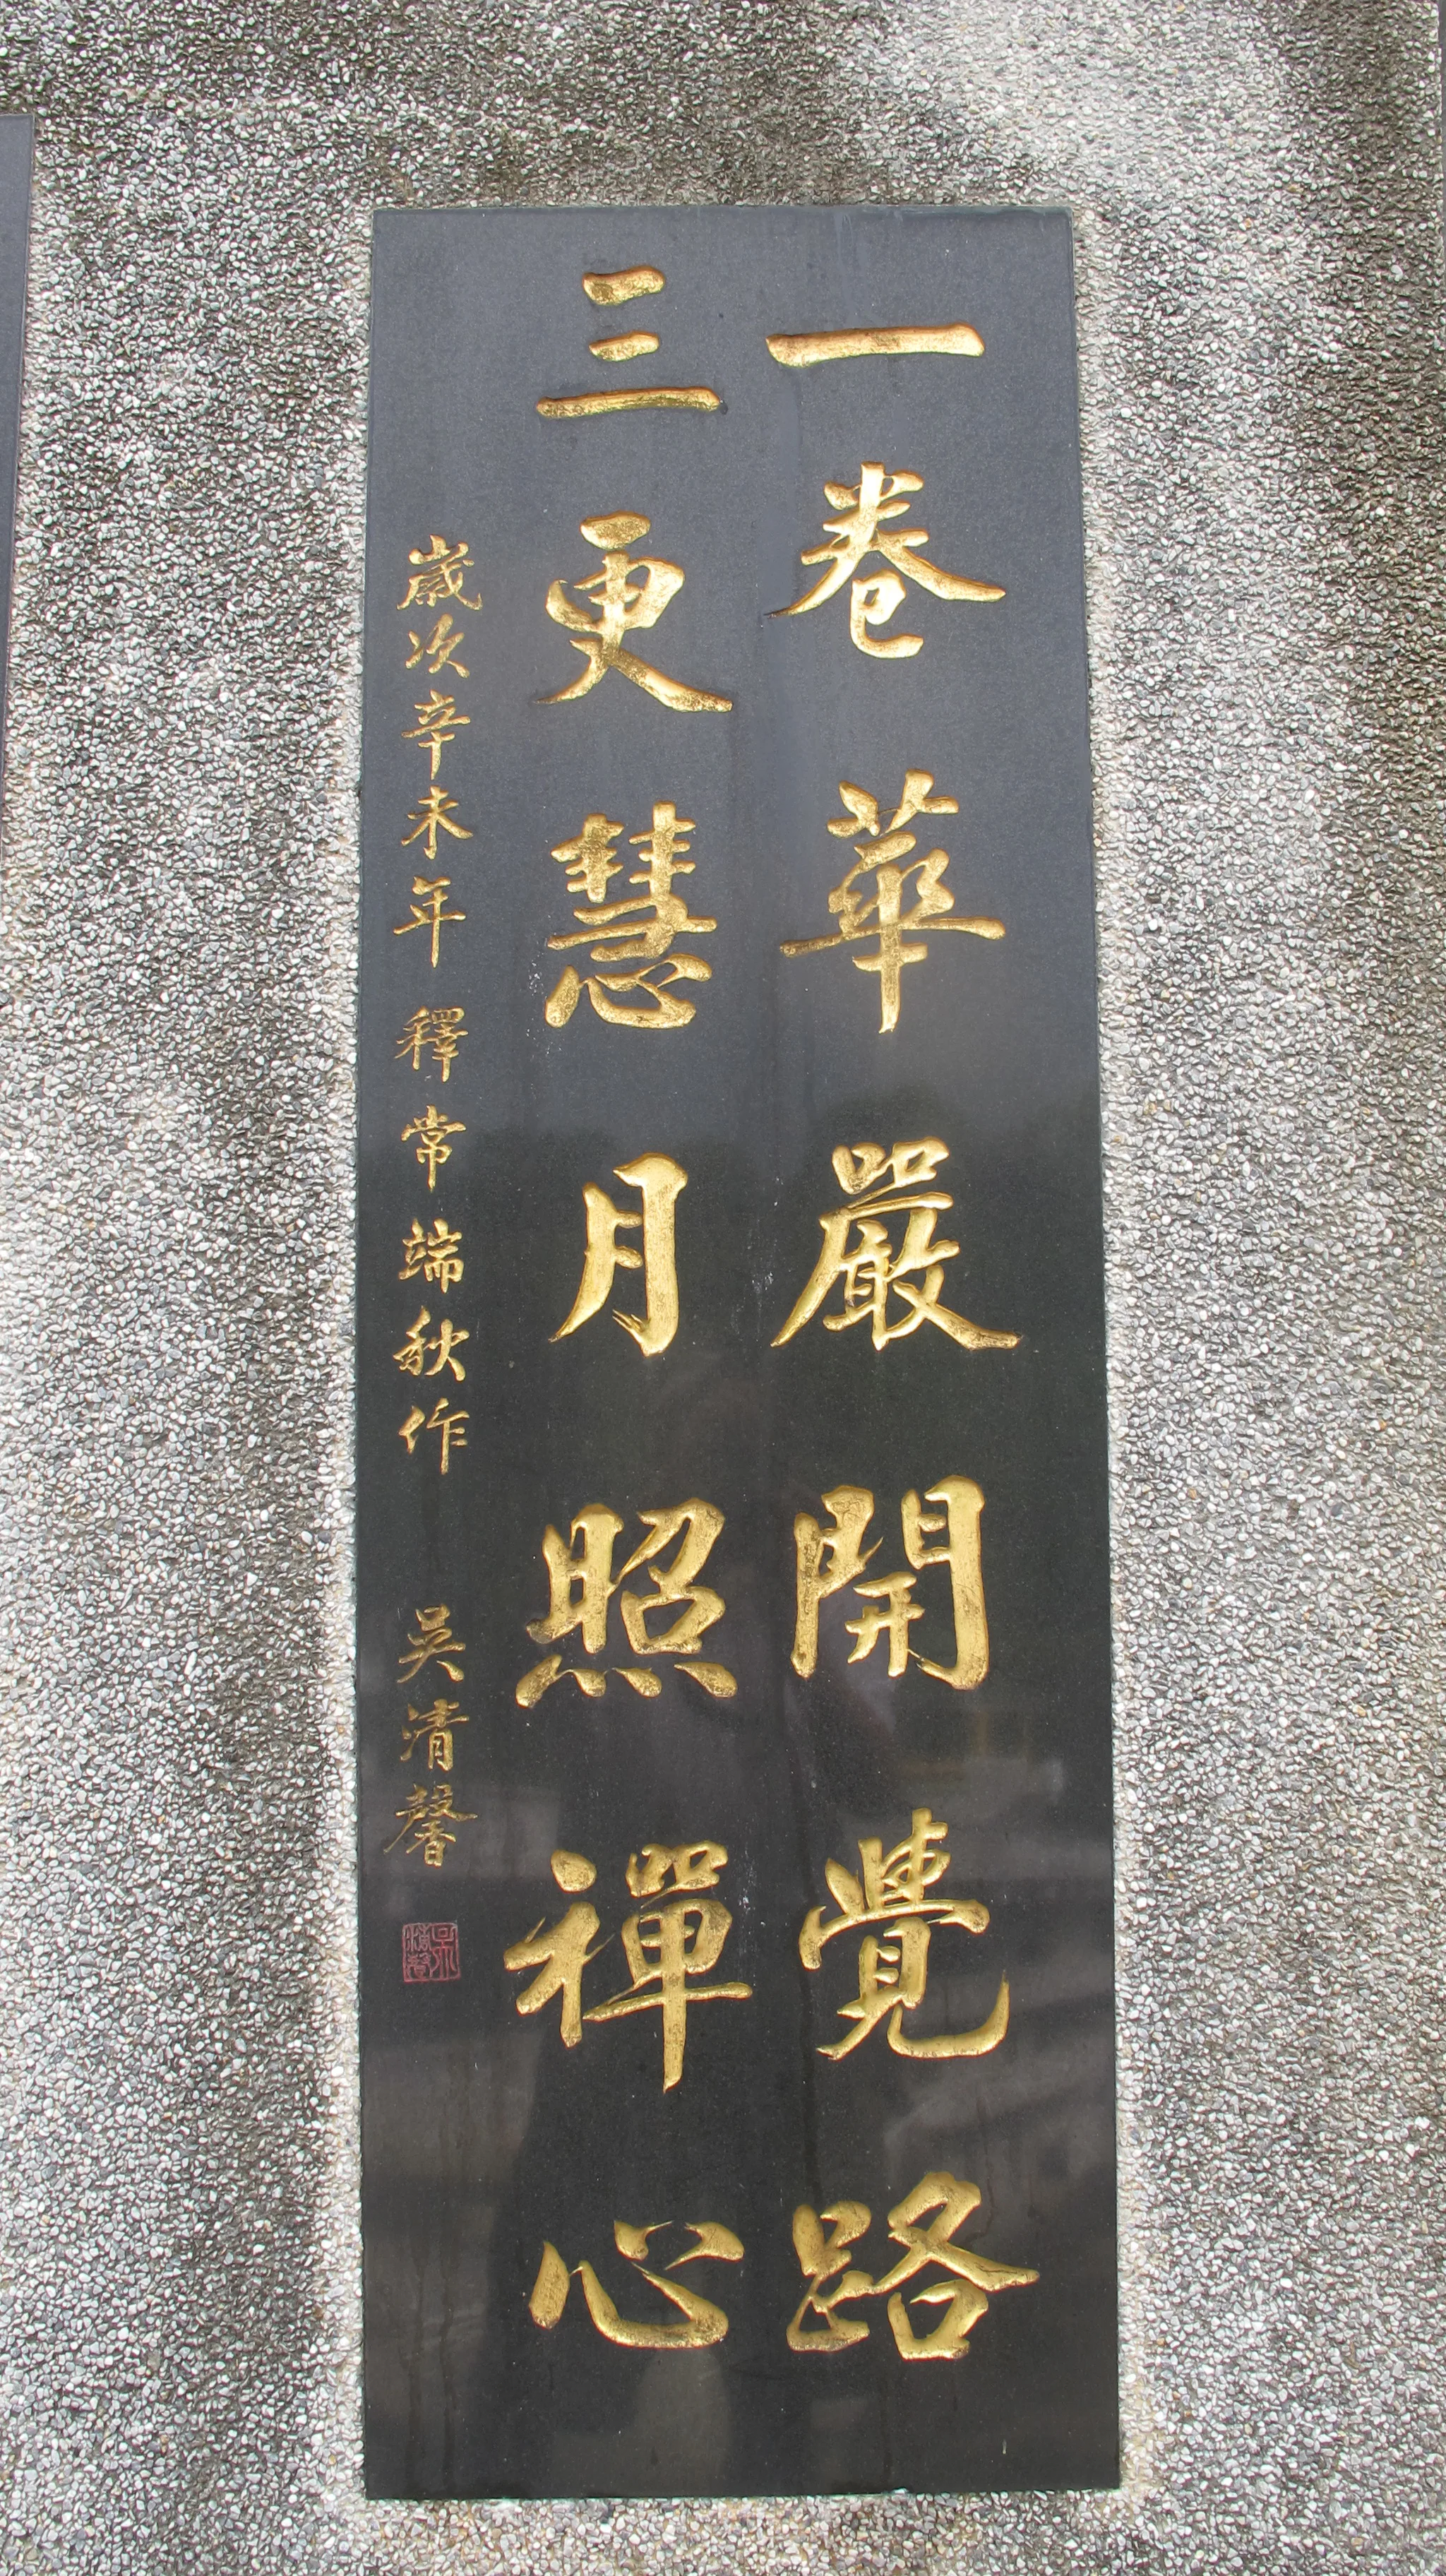 一卷華嚴開覺路
三更慧月照禪心
歲次辛未年 釋常端秋作 吳清馨
吳清馨